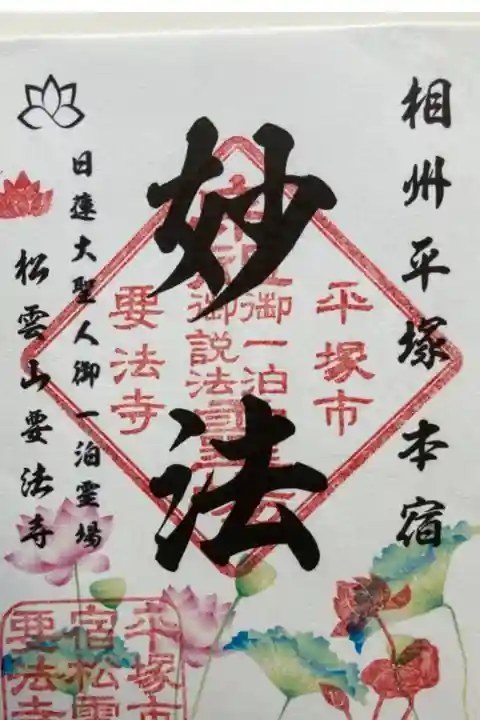 相州平塚本宿
妙法
平塚市
御一泊
御説法
要法寺
日蓮大聖人御一泊霊場
松雲山要法寺
平塚市
宿松雲
要法寺